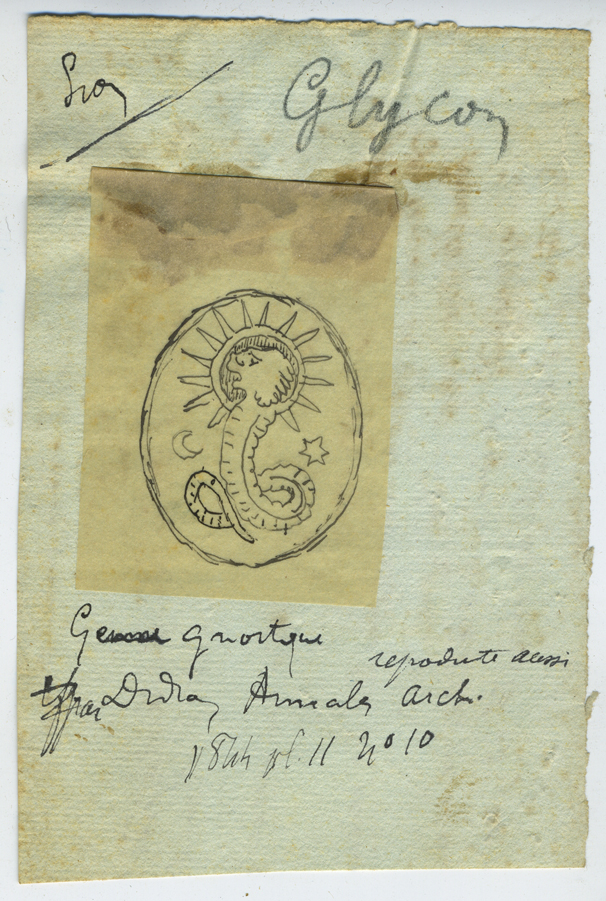 Glycon
Gemme gnostique
reproduite aussi
par Didron Annales arch.
1844 pl. 11 nº 10